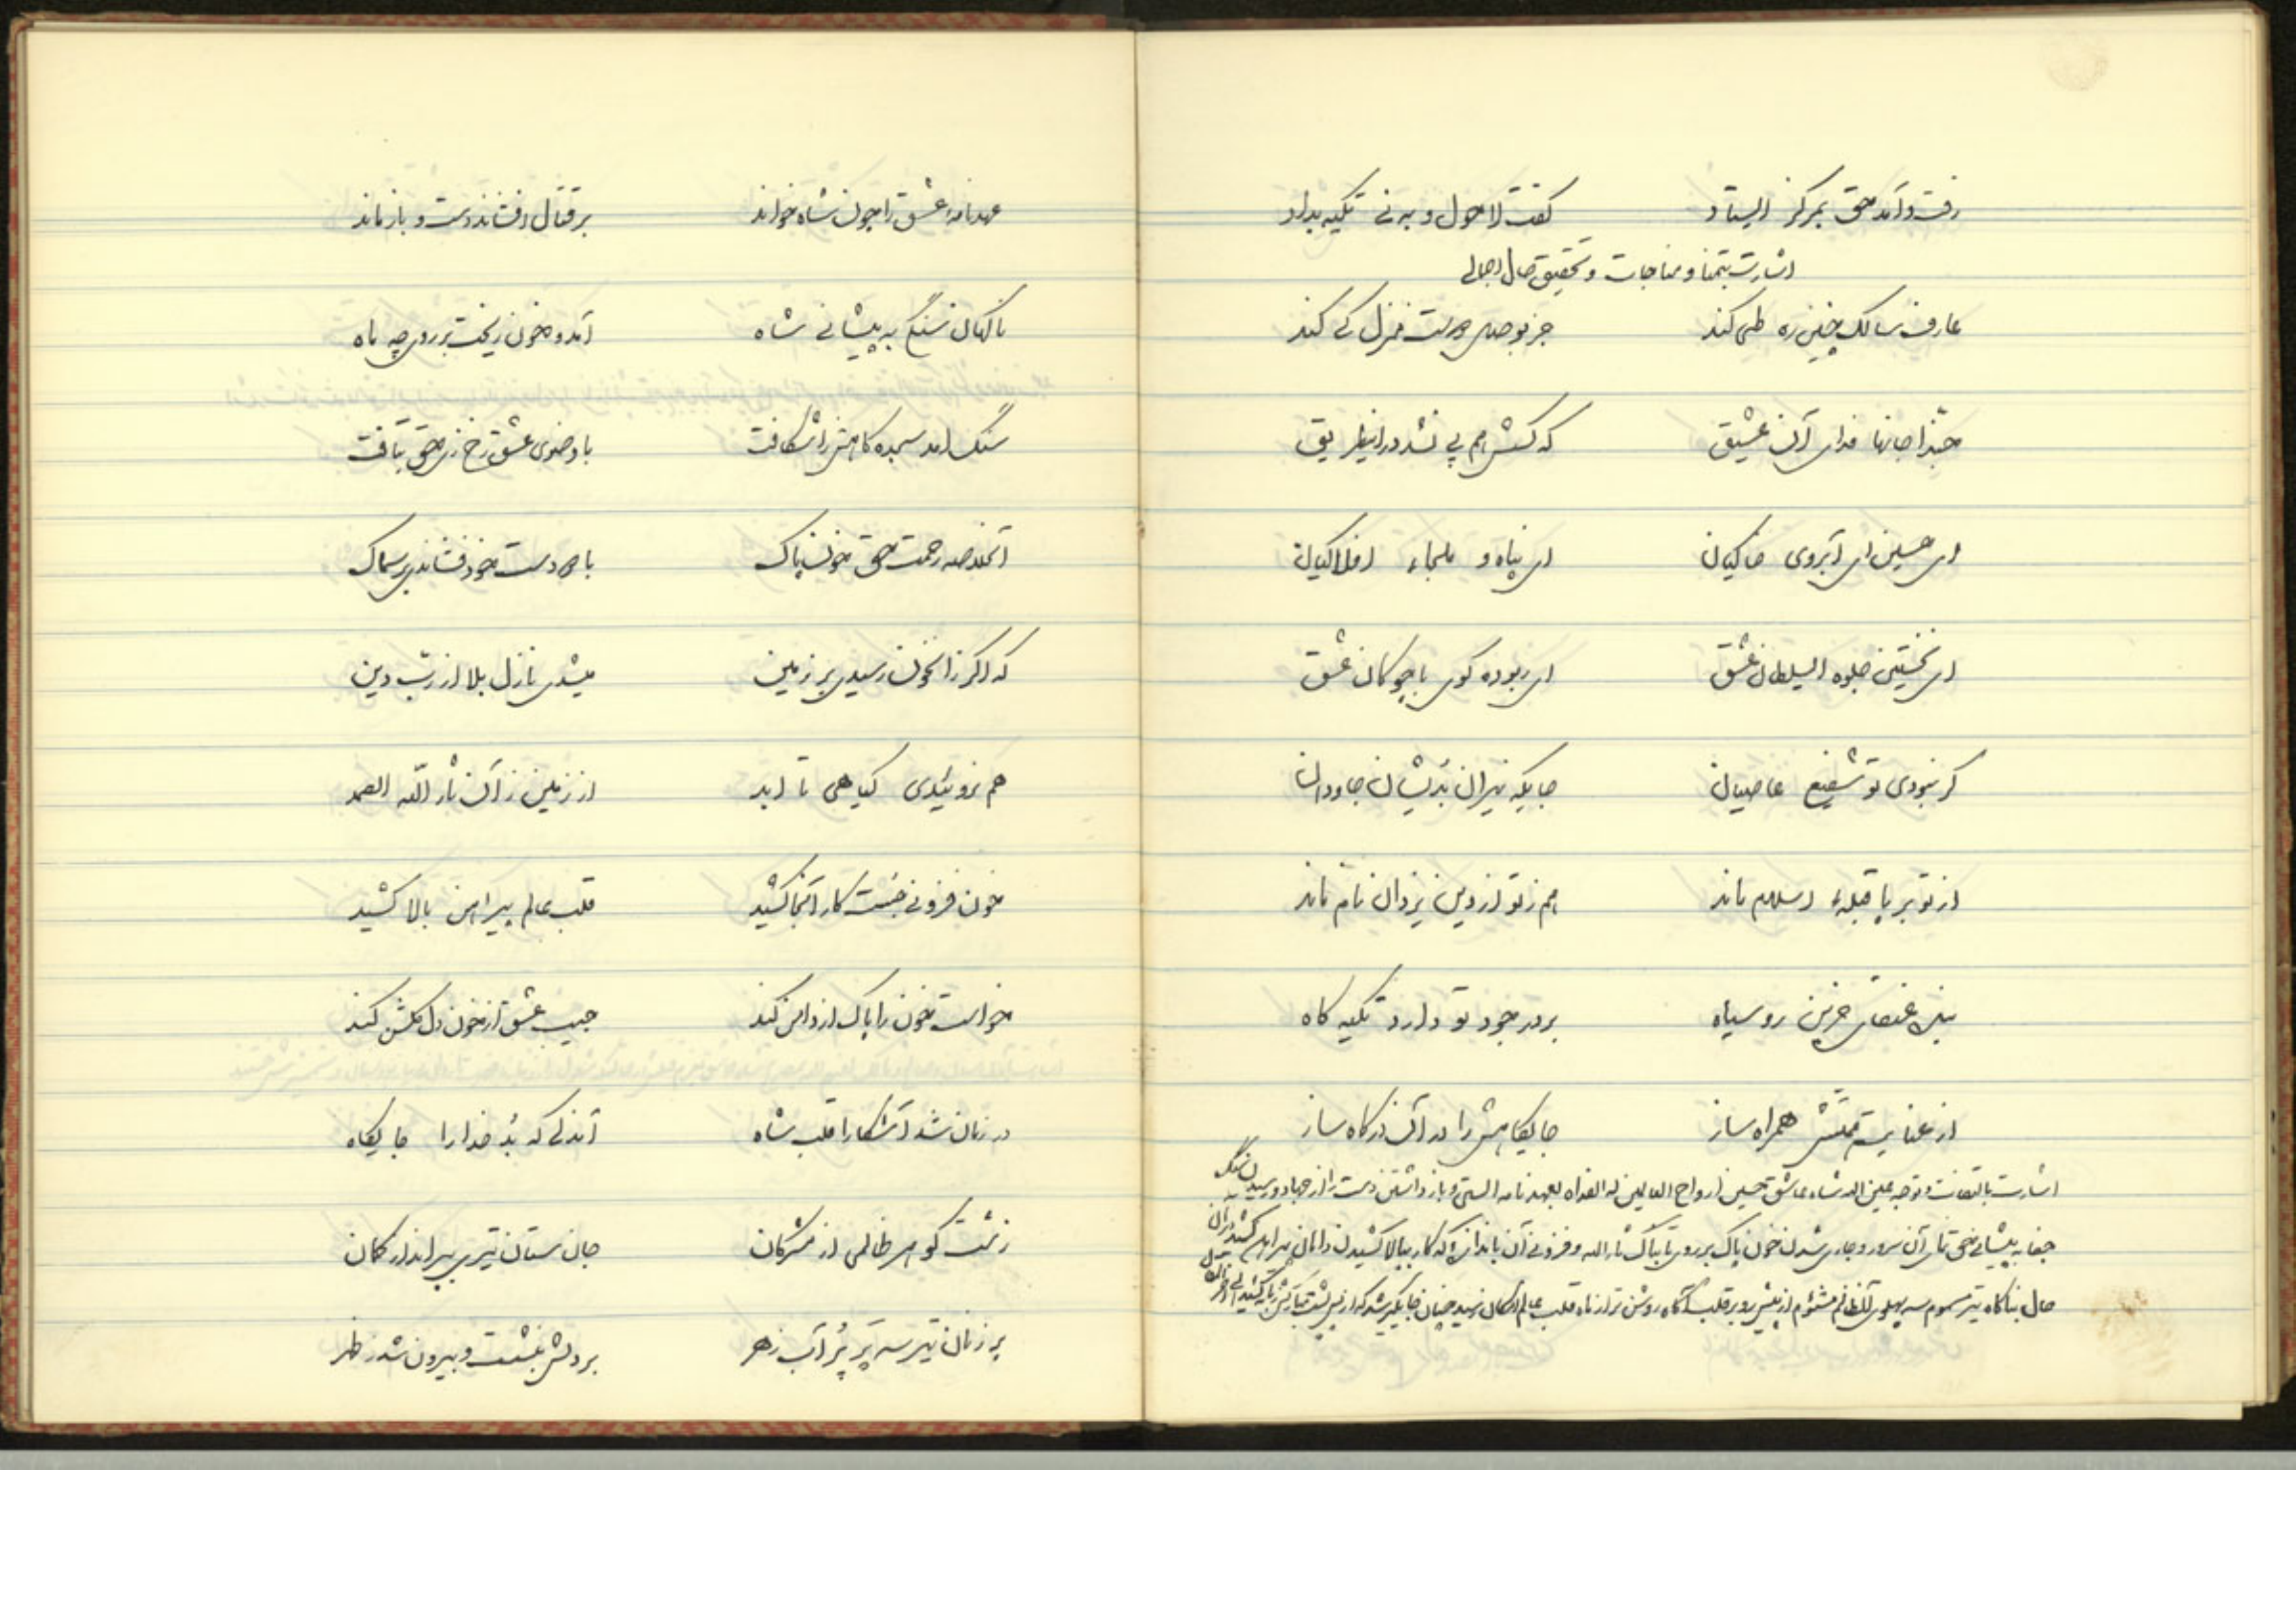 رفت و آمد حق بمرکز ایستاد گفت لا حول و به نی تکیه بداد
اشارت بتمنا و مناجات و تحقیق حال اجمالی
عارف سالک چنین ره طی کند جز بوصل دوست منزل کی کند
حبّذا جانها فدای آن عشیق که کسش هم پی نشد در اینطریق
ای حسین ای آبروی خاکیان ای پناه و ملجاء افلاکیان
ای نخستین جلوه السلطان عشق ای ربوده گوی با چوگان عشق
گر نبودی تو شفیع عاصیان جایگه نیران بُدیشان جاودان
از تو بر پا قبلهٔ اسلام ماند هم ز تو از دین یزدان نام ماند
بنده عنقای حزین رو سیاه بر در جود تو دارد تکیه گاه
از عنایت همتش همراه ساز جایگاهش را در آن درگاه ساز
اشارت بالتفات و توجه عین اله شاه عاشق حسین ارواح العالمین له الفداه بعهد نامه الستی و باز داشتن دست را از جهاد و رسیدن سنگ
جفا به پیشانی حق نمای آن سرور و جاری شدن خون پاک بر روی تابناک ثار الله و فزونی آن باندازه که کار ببالا کشیدن دامان پیراهن کشید در آن
حال بناگاه تیر مسموم سه پهلوی از ظالم مشئوم از پیش رو بر قلب آگاه روشن تر از ماه قلب عالم امکان رسید چنان جایگیر شد که از پس پشت مبارکش
عهدنامهٔ عشق را چون شاه خواند بر قتال افشاند دست و باز ماند
ناگهان سنگی به پیشانی شاه آمد و خون ریخت بر روی چه ماه
سنگ آمد سجده گاهش را شکافت با وضوی عشق رخ زی حق بتافت
آنخلاصه رحمت حق خون پاک با دو دست خود فشاندی بر سماک
که اگر ز آنخون رسیدی بر زمین میشدی نازل بلا از ربّ دین
هم نروئیدی گیاهی تا ابد از زمین ز آن ثار اللّه الصمد
خون فزونی جست کار آنجا کشید قلب عالم پیراهن بالا کشید
خواست خون را پاک از دامن کند جیب عشق از خون دل گلشن کند
در زمان شد آشکارا قلب شاه آندلی که بُد خدا را جایگاه
زشت گوهر ظالمی از مشرکان جان ستان تیری بیر انداز کمان
پر زنان تیر سه پَر پُر آب زهر بر دلش بنشست و بیرون شد ز ظهر